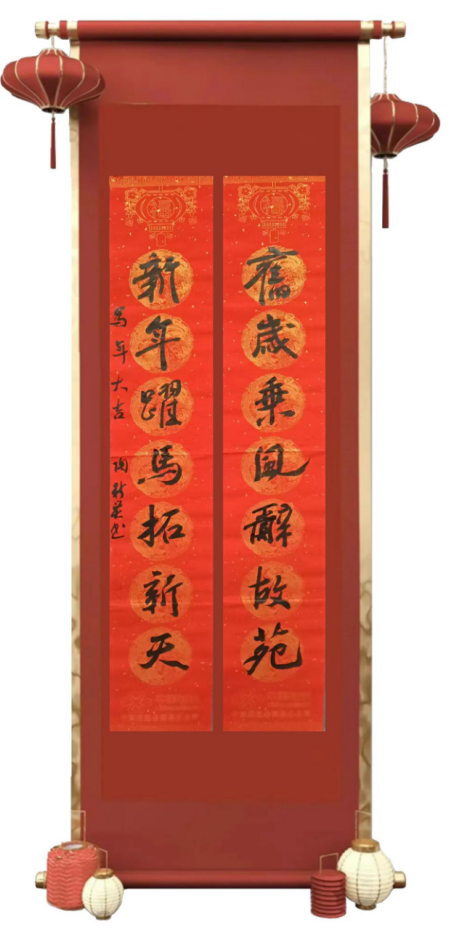 舊歲乘風辭故苑
新年躍馬拓新天
馬年大吉